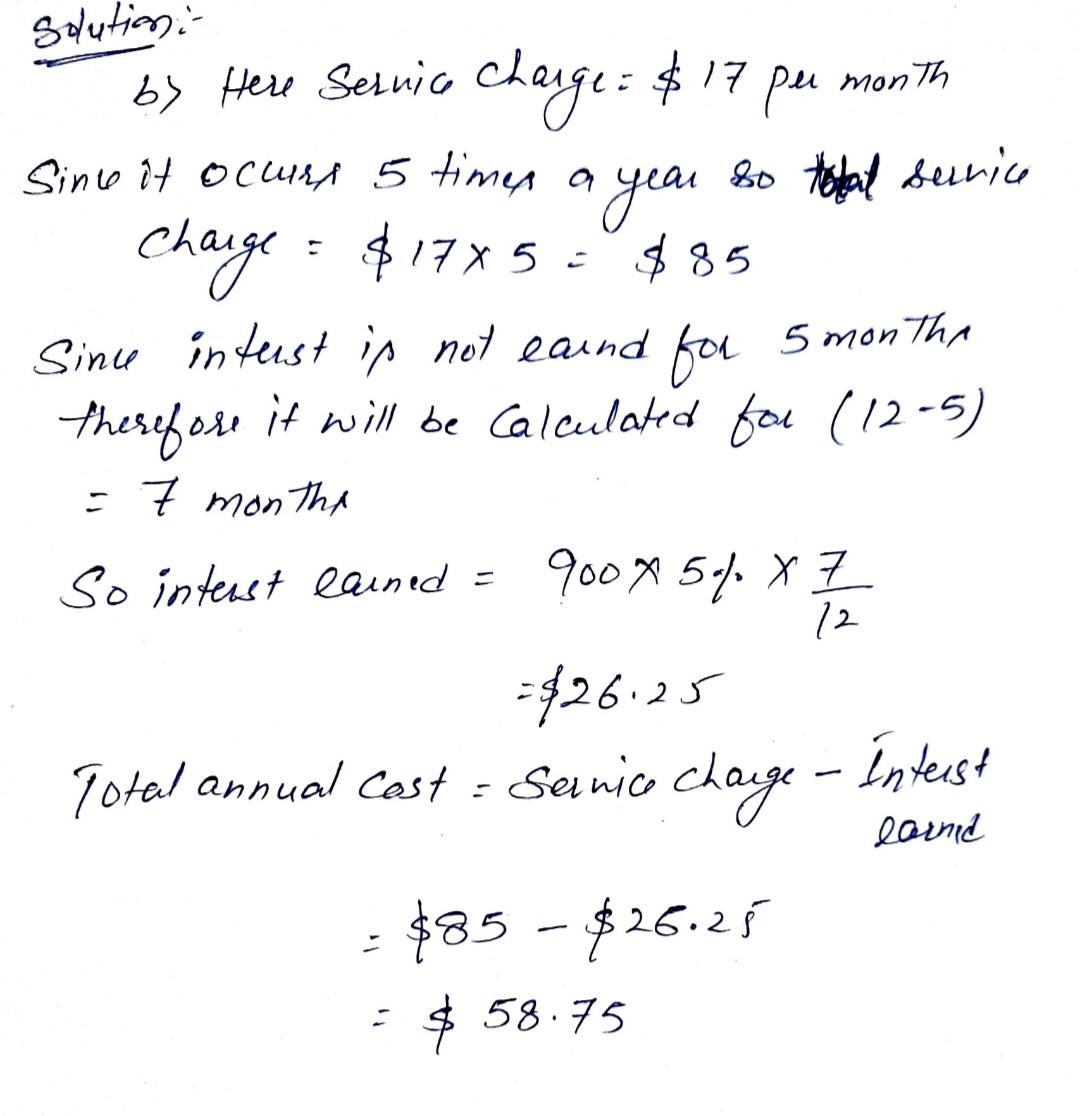 Solution:-
b) Here Service Charge = $ 17 per month
Since it occurs 5 times a year so total service
Charge = $ 17 x 5 = $ 85
Since interst is not earnd for 5 months
therefore it will be Calculated for (12-5)
= 7 months
So interst earned = 900 x 5% x 7/12
= $26.25
Total annual Cost = Service charge - Interst
earned
= $85 - $26.25
= $ 58.75